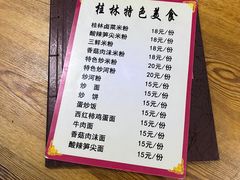 桂林特色美食
桂林卤菜米粉 18元/份
酸辣笋尖米粉 18元/份
三鲜米粉 18元/份
香菇肉沫米粉 18元/份
特色炒米粉 20元/份
特色炒河粉 20元/份
炒河粉 15元/份
炒面 15元/份
炒饼 15元/份
蛋炒饭 15元/份
西红柿鸡蛋面 15元/份
牛肉面 15元/份
香菇肉沫面 15元/份
酸辣笋尖面 15元/份